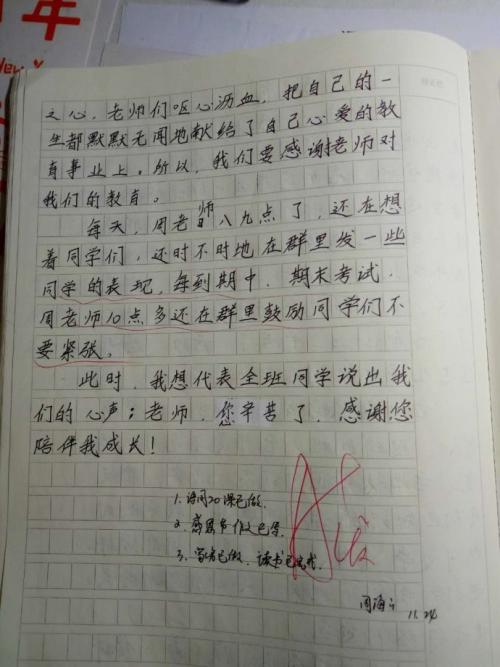 年
之心，老师们呕心沥血，把自己的一
生都默默无闻地献给了自己心爱的教
育事业上。所以，我们要感谢老师对
我们的教育。
每天，周老师八九点了，还在想
着同学们，还时不时地在群里发一些
同学的表现，每到期中、期末考试，
周老师10点多还在群里鼓励同学们不
要紧张。
此时，我想代表全班同学说出我
们的心声：老师，您辛苦了，感谢您
陪伴我成长！
1. 20课已做.
2. 感恩节作文已写.
3. 已做，读书已完成.
A
优
周海
11.24